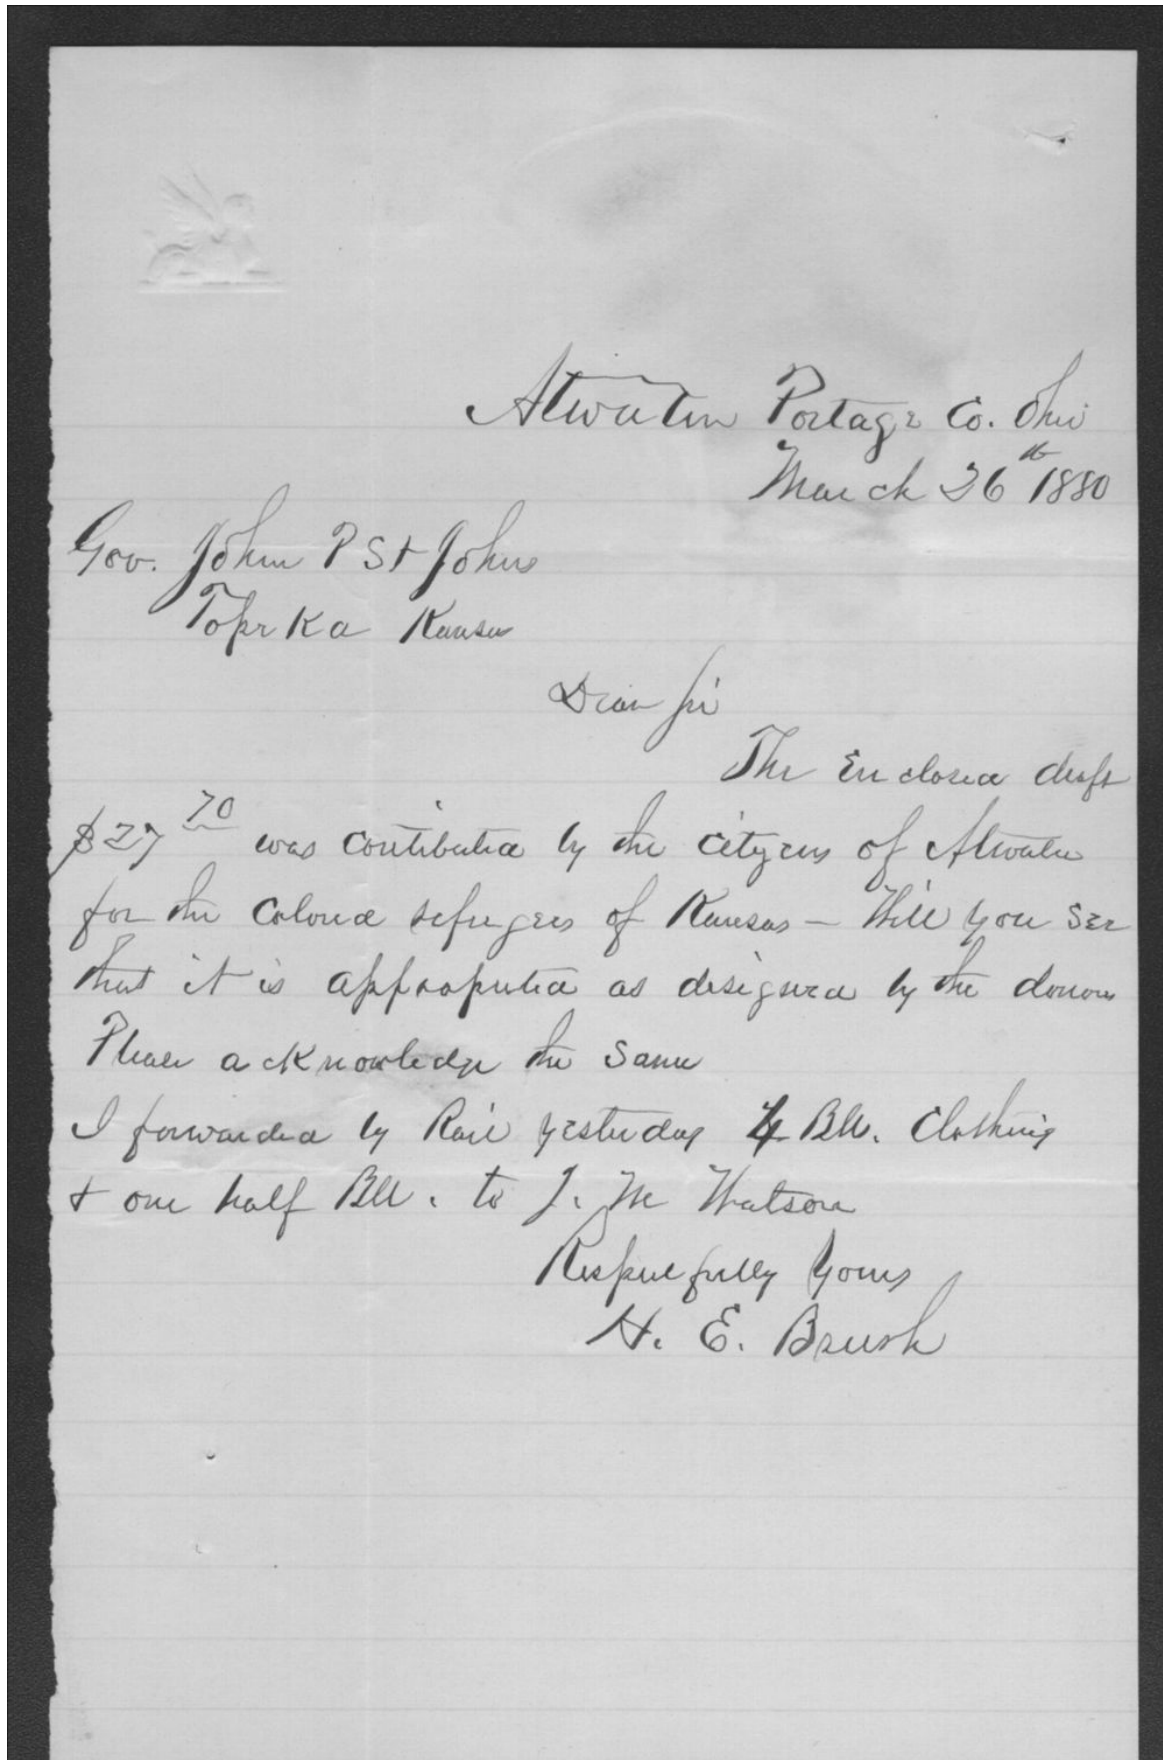 Atwater Portage Co. Ohio
March 26th 1880
Gov. John P St Johns
Topeka Kansas
Dear Sir
The Enclosed draft
$27 70 was contributed by the citizens of Atwater
for the Colored refugees of Kansas — Will you see
that it is appropriated as designed by the donors
Please acknowledge the same
I forwarded by Rail yesterday 4 Bbl. Clothing
& one half Bbl. to J. M Watson
Respectfully Yours
H. E. Brush